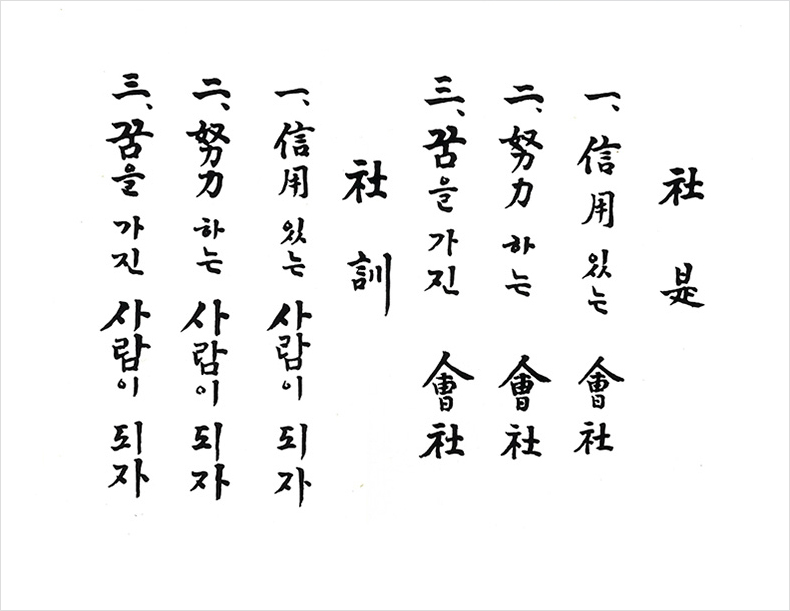 社是
一、信用 있는 會社
二、努力 하는 會社
三、꿈을 가진 會社
社訓
一、信用 있는 사람이 되자
二、努力 하는 사람이 되자
三、꿈을 가진 사람이 되자